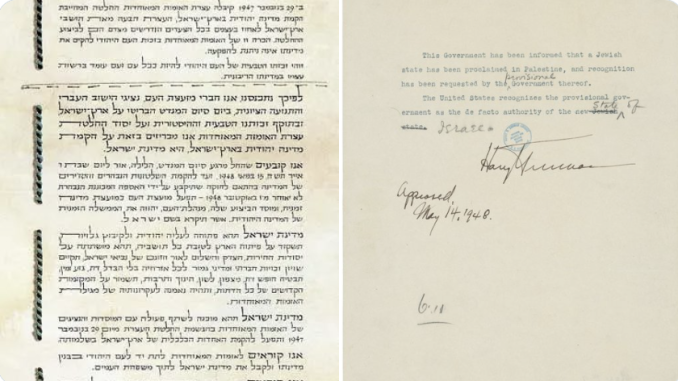 ב־29 בנובמבר 1947 קיבלה עצרת האומות המאוחדות החלטה המחייבת
הקמת מדינה יהודית בארץ־ישראל, העצרת תבעה מאת תושבי
ארץ־ישראל לאחוז בעצמם בכל הצעדים הנדרשים מצדם הם לביצוע
החלטה. הכרה זו של האומות המאוחדות בזכות העם היהודי להקים את
מדינתו אינה ניתנת להפקעה.
זוהי זכותו הטבעית של העם היהודי להיות ככל עם ועם עומד ברשות
עצמו במדינתו הריבונית.
לפיכך נתכנסנו אנו חברי מועצת העם, נציגי הישוב העברי
והתנועה הציונית, ביום סיום המנדט הבריטי על ארץ־ישראל
ובתוקף זכותנו הטבעית וההיסטורית ועל יסוד החלטת
עצרת האומות המאוחדות אנו מכריזים בזאת על הקמת
מדינה יהודית בארץ ישראל, היא מדינת ישראל.
אנו קובעים שהחל מרגע סיום המנדט, הלילה, אור ליום שבת ו
אייר תש"ח 15 במאי 1948, ועד להקמת השלטונות הנבחרים והסדירים
של המדינה בהתאם לחוקה שתיקבע על־ידי האספה המכוננת הנבחרת
לא יאוחר מ־1 באוקטובר 1948 - תפעל מועצת העם כמועצת מדינה
זמנית, ומוסד הביצוע שלה, מנהלת־העם, יהווה את הממשלה הזמנית
של המדינה היהודית, אשר תיקרא בשם ישראל.
מדינת ישראל תהא פתוחה לעליה יהודית ולקיבוץ גלויות
תשקוד על פיתוח הארץ לטובת כל תושביה, תהא מושתתה על
יסודות החירות, הצדק והשלום לאור חזונם של נביאי ישראל, תקיים
שויון זכויות חברתי ומדיני גמור לכל אזרחיה בלי הבדל דת, גזע ומין,
תבטיח חופש דת, מצפון, לשון, חינוך ותרבות, תשמור על המקומות
הקדושים של כל הדתות, ותהיה נאמנה לעקרונותיה של מגילת
האומות המאוחדות.
מדינת ישראל תהא מוכנה לשתף פעולה עם המוסדות והנציגים
של האומות המאוחדות בהגשמת החלטת העצרת מיום 29 בנובמבר
1947 ותפעל להקמת האחדות הכלכלית של ארץ־ישראל בשלמותה.
אנו קוראים לאומות המאוחדות לתת יד לעם היהודי בבנין
מדינתו ולקבל את מדינת ישראל לתוך משפחת העמים.
This Government has been informed that a Jewish
state has been proclaimed in Palestine, and recognition
provisional
has been requested by the Government thereof.
The United States recognizes the provisional gov-
ernment as the de facto authority of the new Jewish State of
state. Israel.
Harry Truman
Approved,
May 14, 1948.
6.11